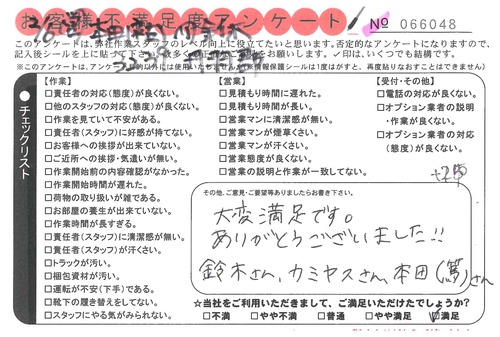 お客様不満足度アンケート
№ 066048
このアンケートは、弊社作業スタッフのレベル向上に役立てたいと思います。否定的なアンケートになりますので、
記入後シールを上に貼って下さい。
※このアンケートは、アンケート
【作業】
□責任者の対応(態度)が良くない。
□他のスタッフの対応(態度)が良くない。
□作業を見ていて不安がある。
□責任者(スタッフ)に好感が持てない。
□お客様への挨拶が出来ていない。
□ご近所への挨拶・気遣いが無い。
□作業開始前の内容確認がなかった。
□作業開始時間が遅れた。
□荷物の取り扱いが雑である。
□お部屋の養生が出来ていない。
□作業時間が長すぎる。
□責任者(スタッフ)に清潔感が無い。
□責任者(スタッフ)が汗くさい。
□トラックが汚い。
□梱包資材が汚い。
□運転が不安(下手)である。
□靴下の履き替えをしてない。
□スタッフにやる気がみられない。
【営業】
□見積もり時間に遅れた。
□見積もり時間が長い。
□営業マンに清潔感が無い。
□営業マンが煙草くさい。
□営業マンが汗くさい。
□営業態度が良くない。
□営業の説明と作業が一致してない。
【受付・その他】
□電話の対応が良くない。
□オプション業者の説明
・作業が良くない。
□オプション業者の対応
(態度)が良くない。
チェックリスト
その他、ご意見・ご要望等ありましたらお書き下さい。
大変満足です。
ありがとうございました!!
鈴木さん、カミヤスさん、本田(篤)さん
☆当社をご利用いただきまして、ご満足いただけたでしょうか?
□不満 □やや不満 □普通 □やや満足 ☑満足